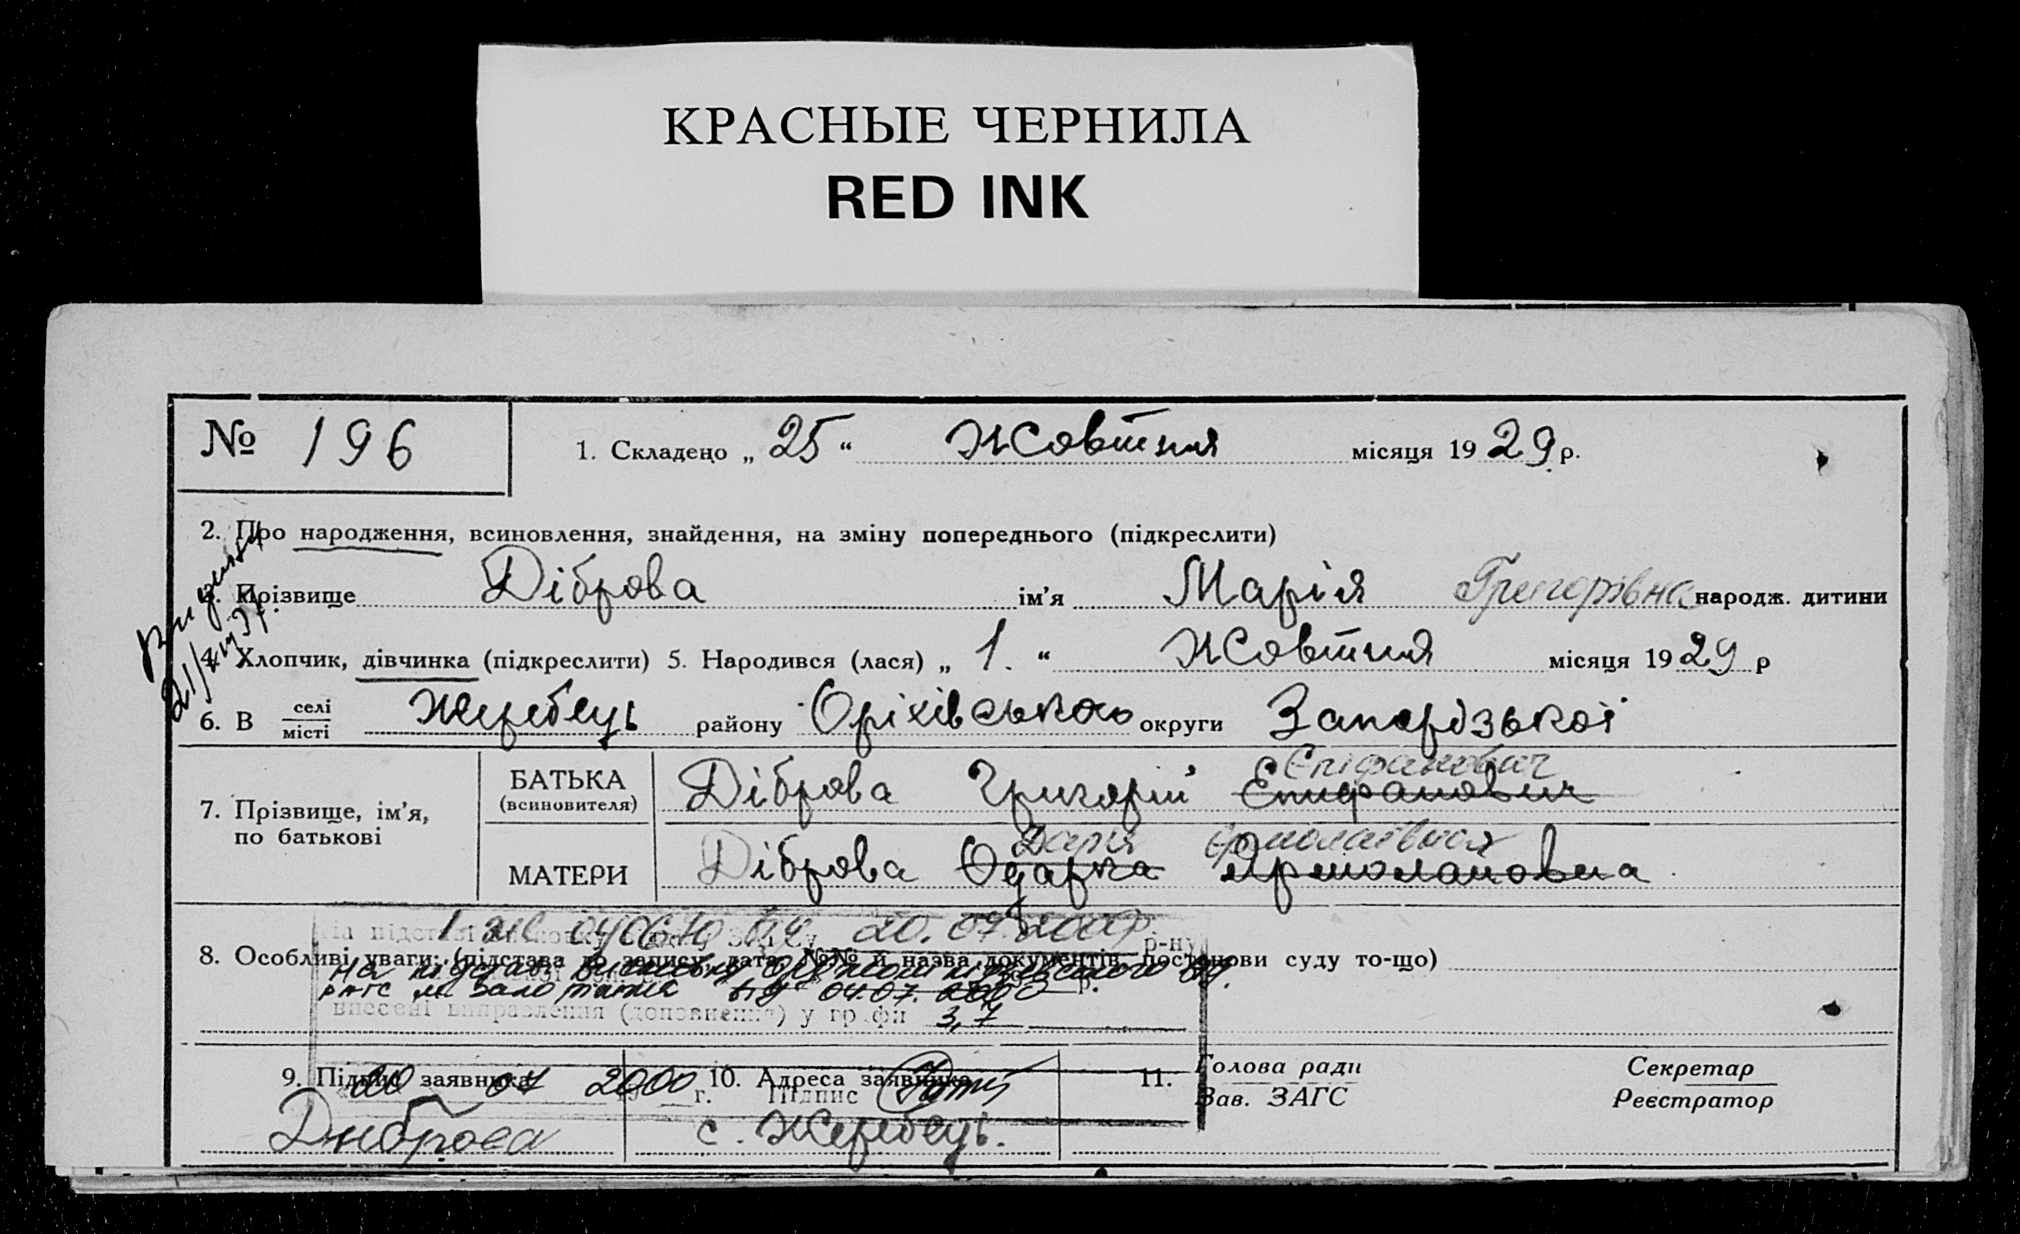 КРАСНЫЕ ЧЕРНИЛА
RED INK
№ 196
1. Складено „ 25 “ Жовтня місяця 19 29 р.
2. Про народження, всиновлення, знайдення, на зміну попереднього (підкреслити)
3. Прізвище Діброва ім’я Марія Григорівна народж. дитини
4. Хлопчик, дівчинка (підкреслити) 5. Народився (лася) „ 1. “ Жовтня місяця 19 29 р
6. В селі місті Жеребець району Оріхівського округи Запорізької
7. Прізвище, ім’я, по батькові
БАТЬКА (всиновителя)
Епіфанович
Діброва Григорій Епифанович
МАТЕРИ
Дарія Єрмолаївна
Діброва Одарка Ярмолаповна
20. 07. 2000р.
р-ну
8. Особливі уваги: (підстава до запису, дата, №№ й назва документів, постанови суду то-що)
На підставі висновку
від 04.07. 2000 р.
внесені виправлення (доповнення) у графи 3,7
9. Підпис заявника 10. Адреса заявника 11. Голова ради Секретар
20 07 2000 г. Підпис Зав. ЗАГС Реєстратор
Диброва с. Жеребець.